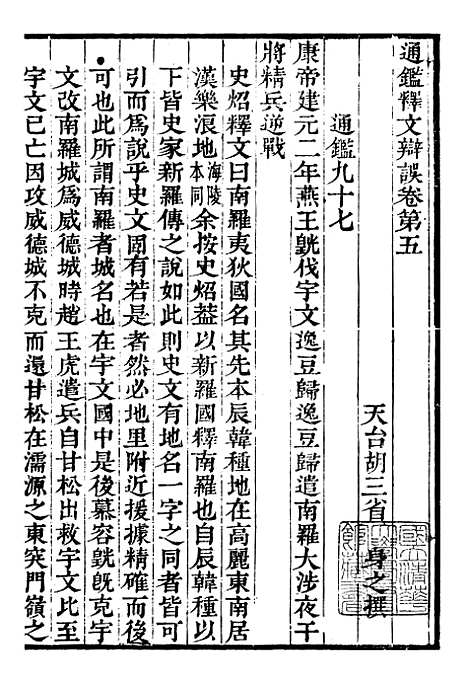 通鑑釋文辯誤卷第五
天台胡三省身之撰
通鑑九十七
康帝建元二年燕王皝伐宇文逸豆歸逸豆歸遣南羅大涉夜干
將精兵逆戰
史炤釋文曰南羅夷狄國名其先本辰韓種地在高麗東南居
漢樂浪地海陵本同余按史炤蓋以新羅國釋南羅也自辰韓種以
下皆史家新羅傳之說如此則史文有地名一字之同皆可
引而爲說乎史文固有若是者然必地里附近援據精確而後
可也此所謂南羅者城名也在宇文國中是後慕容皝旣克宇
文改南羅城爲威德城時趙王虎遣兵自甘松出救宇文比至
宇文已亡因攻威德城不克而還甘松在濡源之東突門嶺之